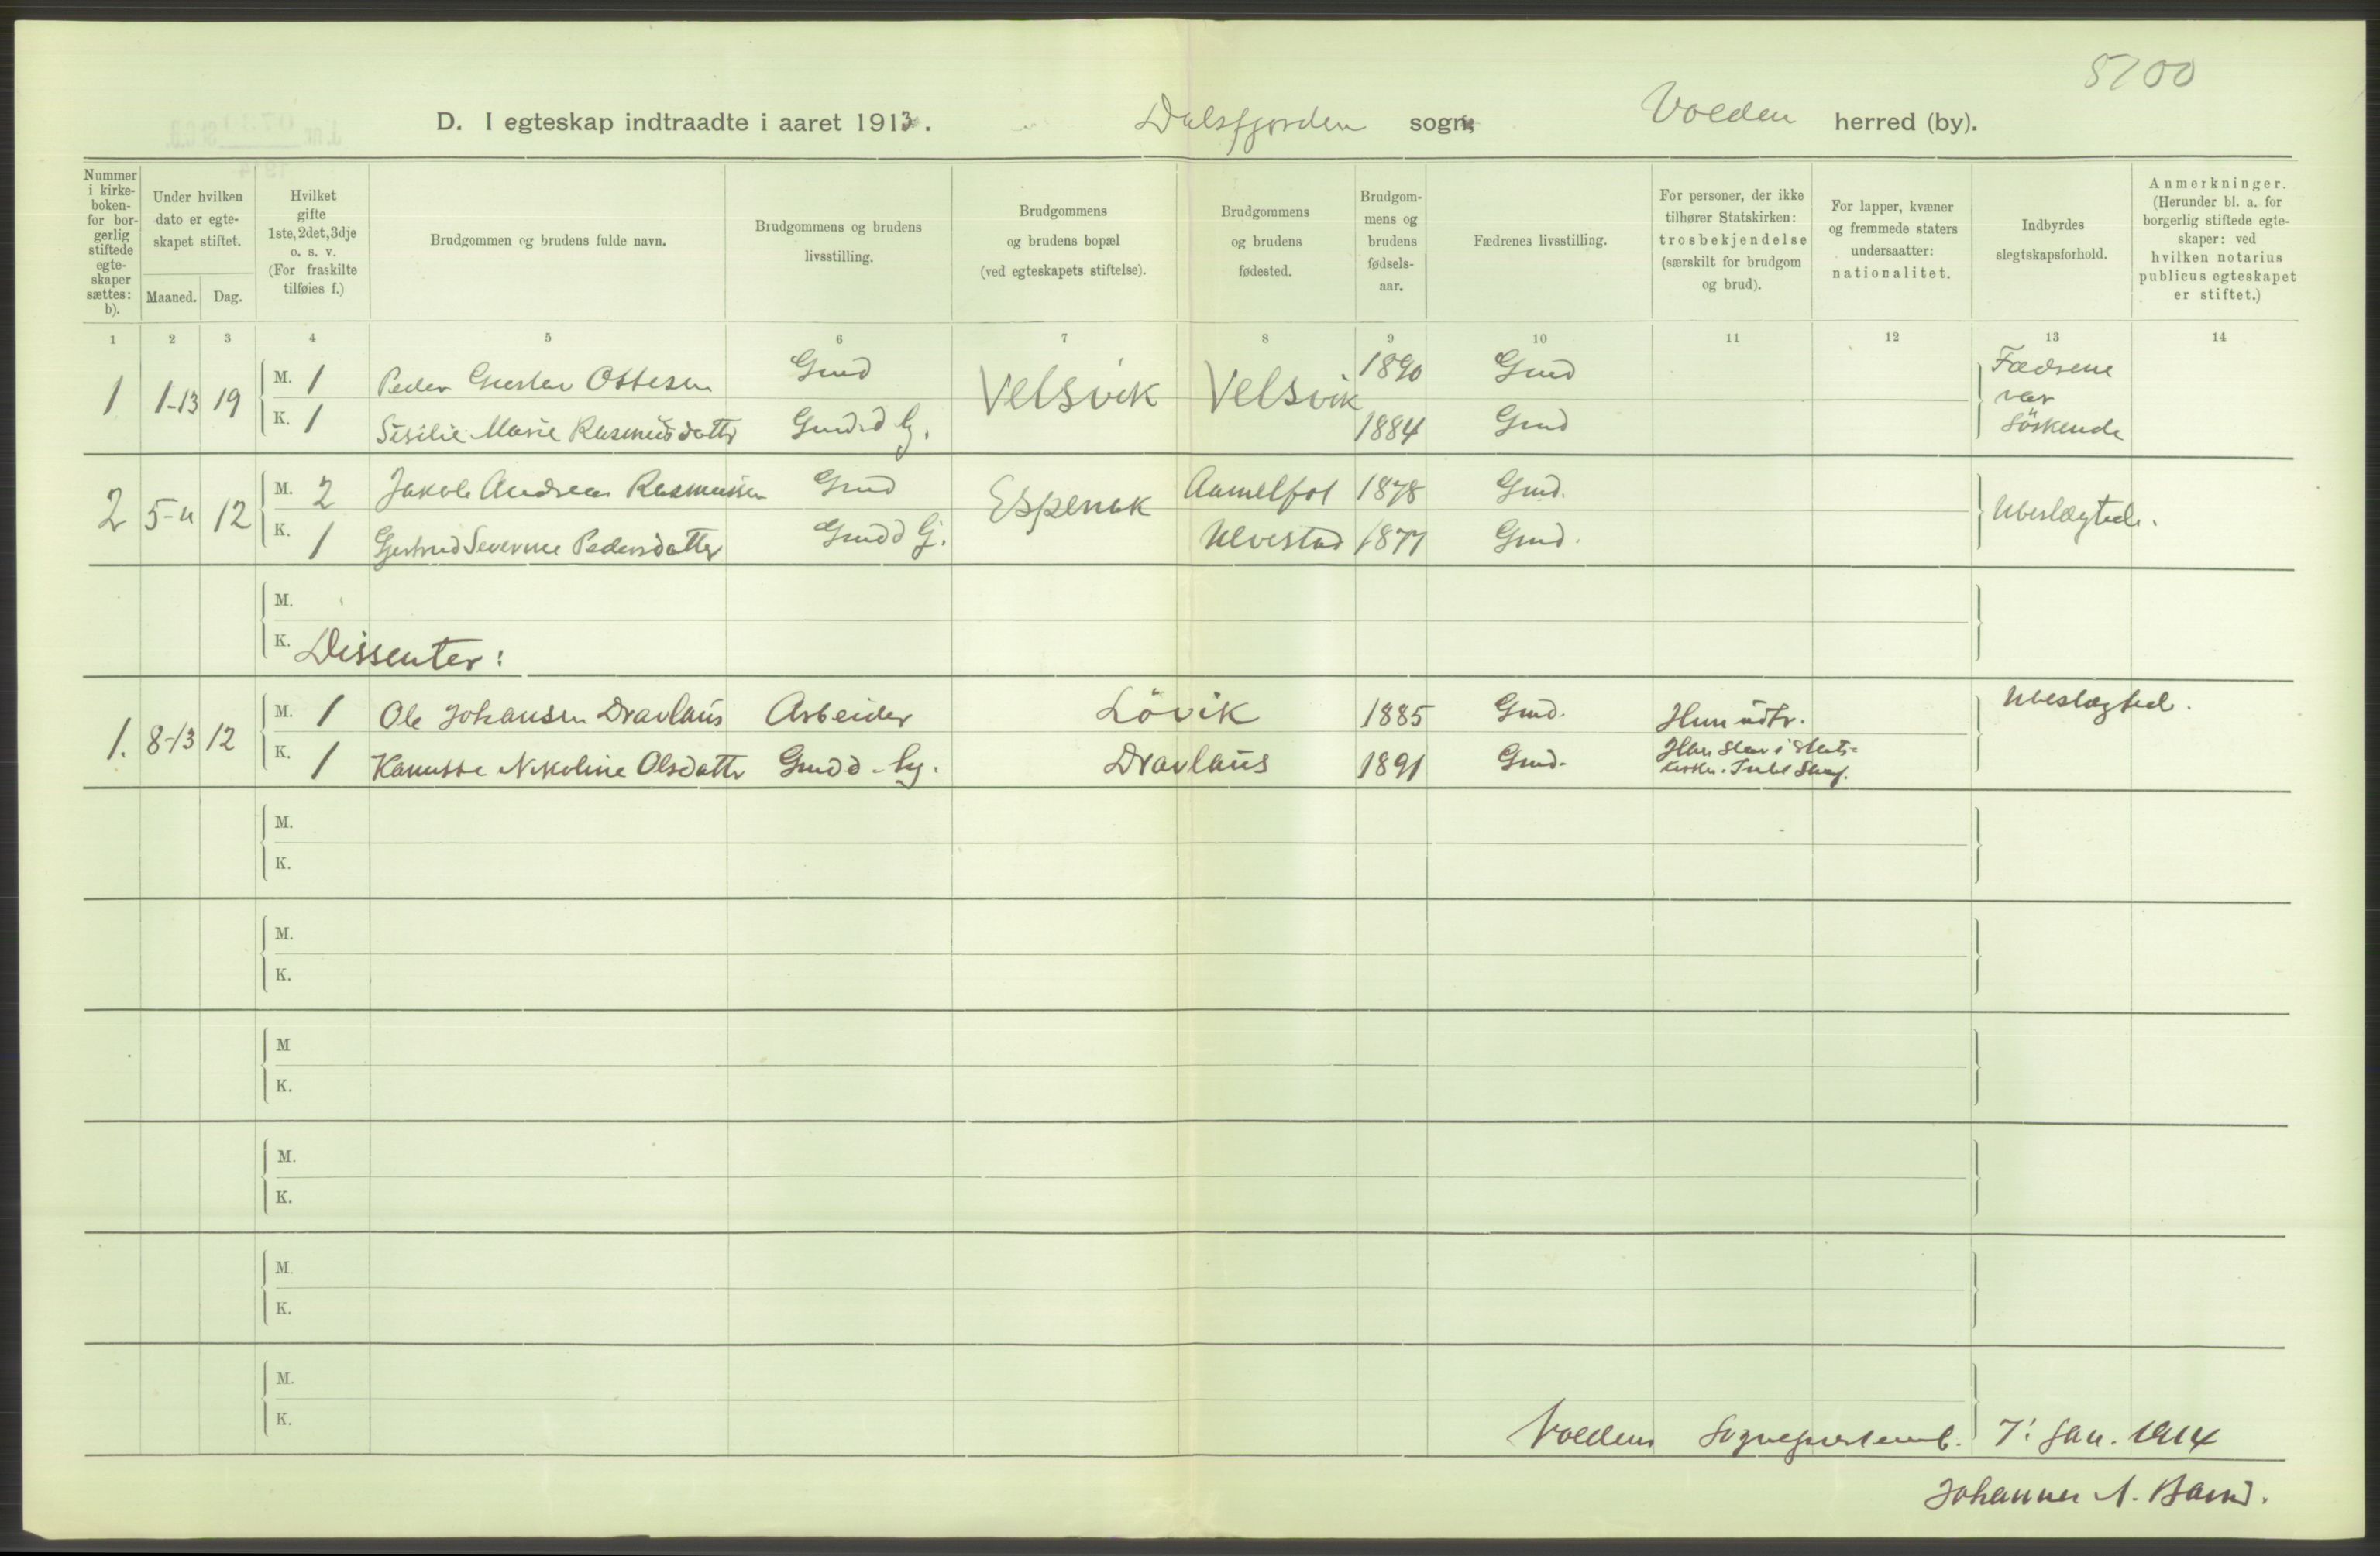 5700
D. I egteskap indtraadte i aaret 1913. Dalsfjorden sogn, Volden herred (by).
Nummer i kirke-boken- for bor-gerlig stiftede egte-skaper sættes: b).
Under hvilken dato er egte-skapet stiftet.
Maaned. Dag.
Hvilket gifte 1ste, 2det, 3dje o. s. v. (For fraskilte tilføies f.)
Brudgommen og brudens fulde navn.
Brudgommens og brudens livsstilling.
Brudgommens og brudens bopæl (ved egteskapets stiftelse).
Brudgommens og brudens fødested.
Brudgom-mens og brudens fødsels-aar.
Fædrenes livsstilling.
For personer, der ikke tilhører Statskirken: trosbekjendelse (særskilt for brudgom og brud).
For lapper, kvæner og fremmede staters undersaatter: nationalitet.
Indbyrdes slegtskapsforhold.
Anmerkninger. (Herunder bl. a. for borgerlig stiftede egte-skaper: ved hvilken notarius publicus egteskapet er stiftet.)
1 2 3 4 5 6 7 8 9 10 11 12 13 14
1 1-13 19 M. 1 Peder Gustav Ottesen Gmd Velsvik Velsvik 1890 Gmd Fædrene var Söskende
K. 1 Sisilie Marie Rasmusdattr Gmd.d 1884 Gmd
2 12 M. 2 Jakob Andreas Rasmussen Gmd Espenak Aamelfot 1878 Gmd. Ubeslægtede.
K. 1 Gertrud Severine Pedersdatter Gmd d Ulvestad 1877 Gmd.
M.
K. Dissenter:
1. 8-13 12 M. 1 Ole Johansen Dravlaus Arbeider Lövik 1885 Gmd. Hun udtr. Ubeslægted.
K. 1 Nikoline Olsdattr Gmd d. Dravlaus 1891 Gmd. Han staar i Stats-
M.
K.
M.
K.
M
K.
M.
K.
M.
K.
M.
K.
Voldens 7: Jan. 1914
Johannes